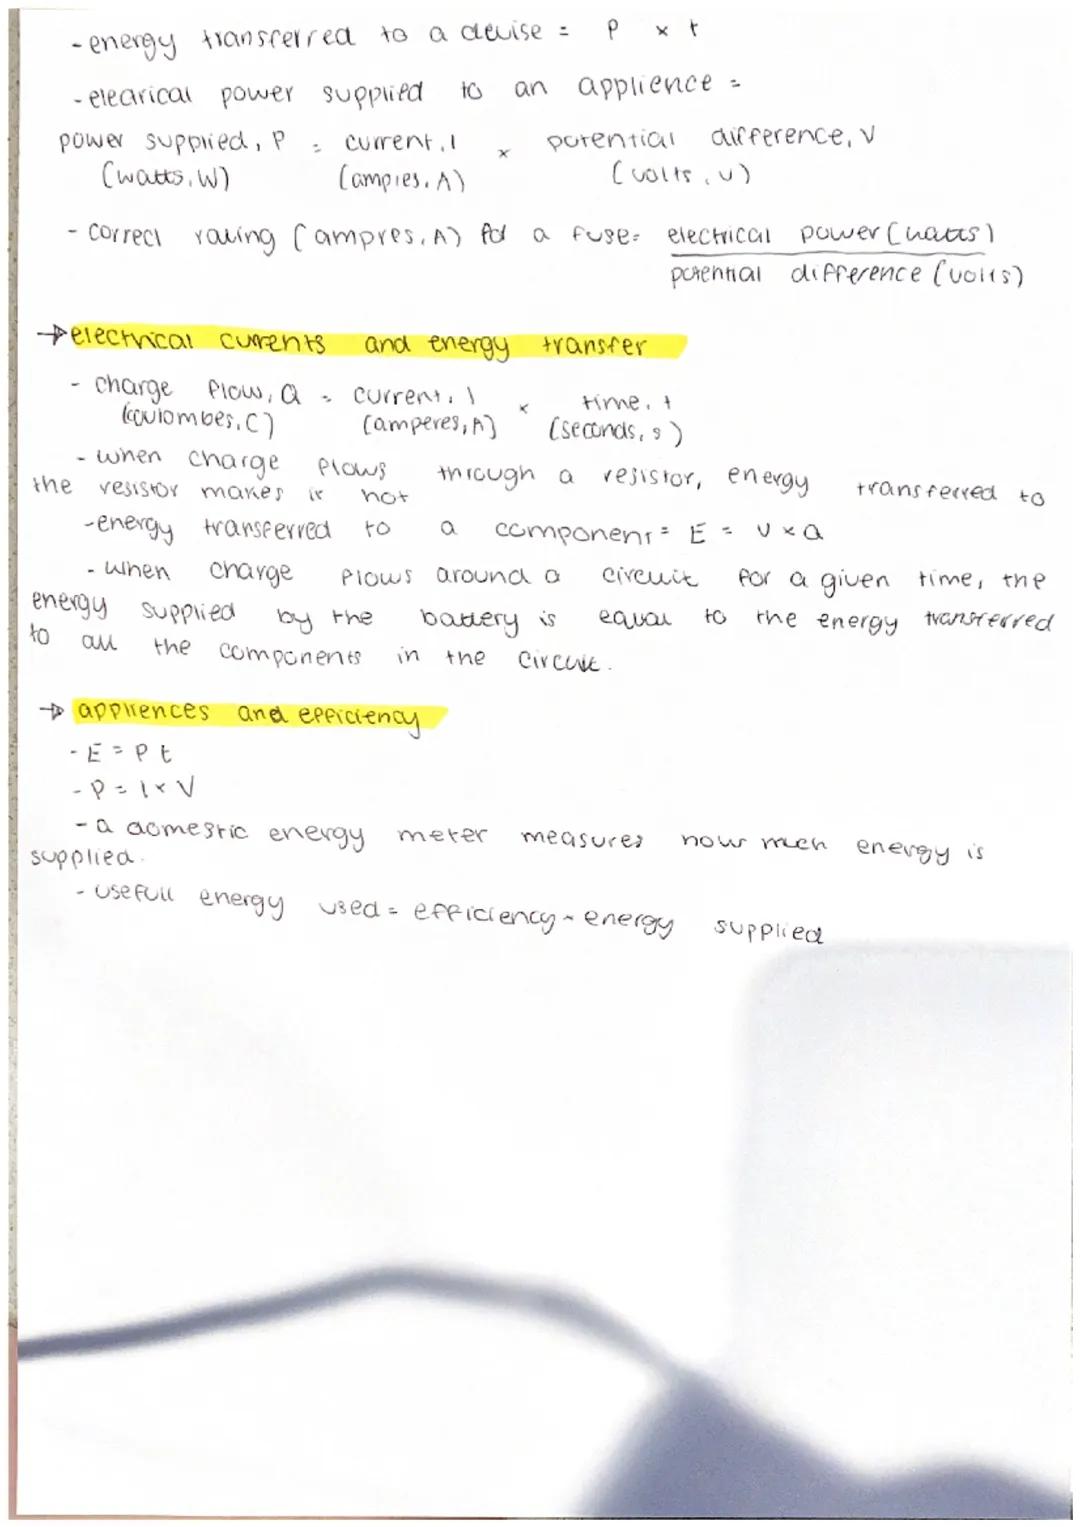 - energy transferred to a devise = P x t
- elecrical power supplied to an applience =
power supplied, P = current, I x potential difference, V
(watts, W) (ampres, A) (volts, v)
- correct rating (ampres, A) for a fuse= electrical power (watts)
potential difference (volts)
→ electrical currents and energy transfer
- charge flow, Q = current, I x time, t
(coulombes, C) (amperes, A) (seconds, s)
- when charge flows through a resistor, energy transferred to
the resistor makes it hot
- energy transferred to a component = E = V x Q
- when charge flows around a circuit for a given time, the
energy supplied by the battery is equal to the energy transferred
to all the components in the circuit.
→ appliences and efficiency
- E = P t
- P = I x V
- a domestic energy meter measures how much energy is
supplied.
- usefull energy used = efficiency x energy supplied